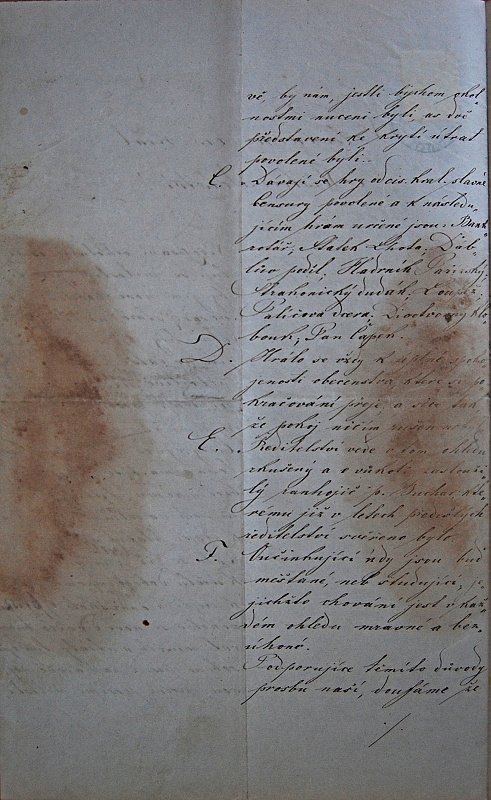 vě, by nám, jestli bychom okol-
nostmi nuceni byli, as dvě
představení ke krytí útrat
povolené byli.
C. Dávají se hry od cis. král. slavné
censury povolené a k násled-
jícím hrám určené jsou: Bank-
rotář, Statek Lhota, Ďáb-
lův podíl, Hadrník Pařížský,
Strakonický dudák, Loupež,
Paličova dcera, klo-
bouk, Pan Čapek.
D. Hrálo se vždy k úplné spoko-
jenosti obecenstva, které si po
kračování přeje, a sice tak
že pokoj ničím rušen
E. Ředitelství vede v tom ohledu
zkušený a v zaslouži-
lý ranhojič p. Suchar, kte-
rému již v letech předešlých
ředitelství svěřeno bylo.
F. Oučinkující údy jsou buď
měšťané, neb studující, je-
jichžto chování jest v kaž-
dém ohledu mravné a bez-
úhoné.
Podporujíce těmito důvody
prosbu naši, doufáme že
./.